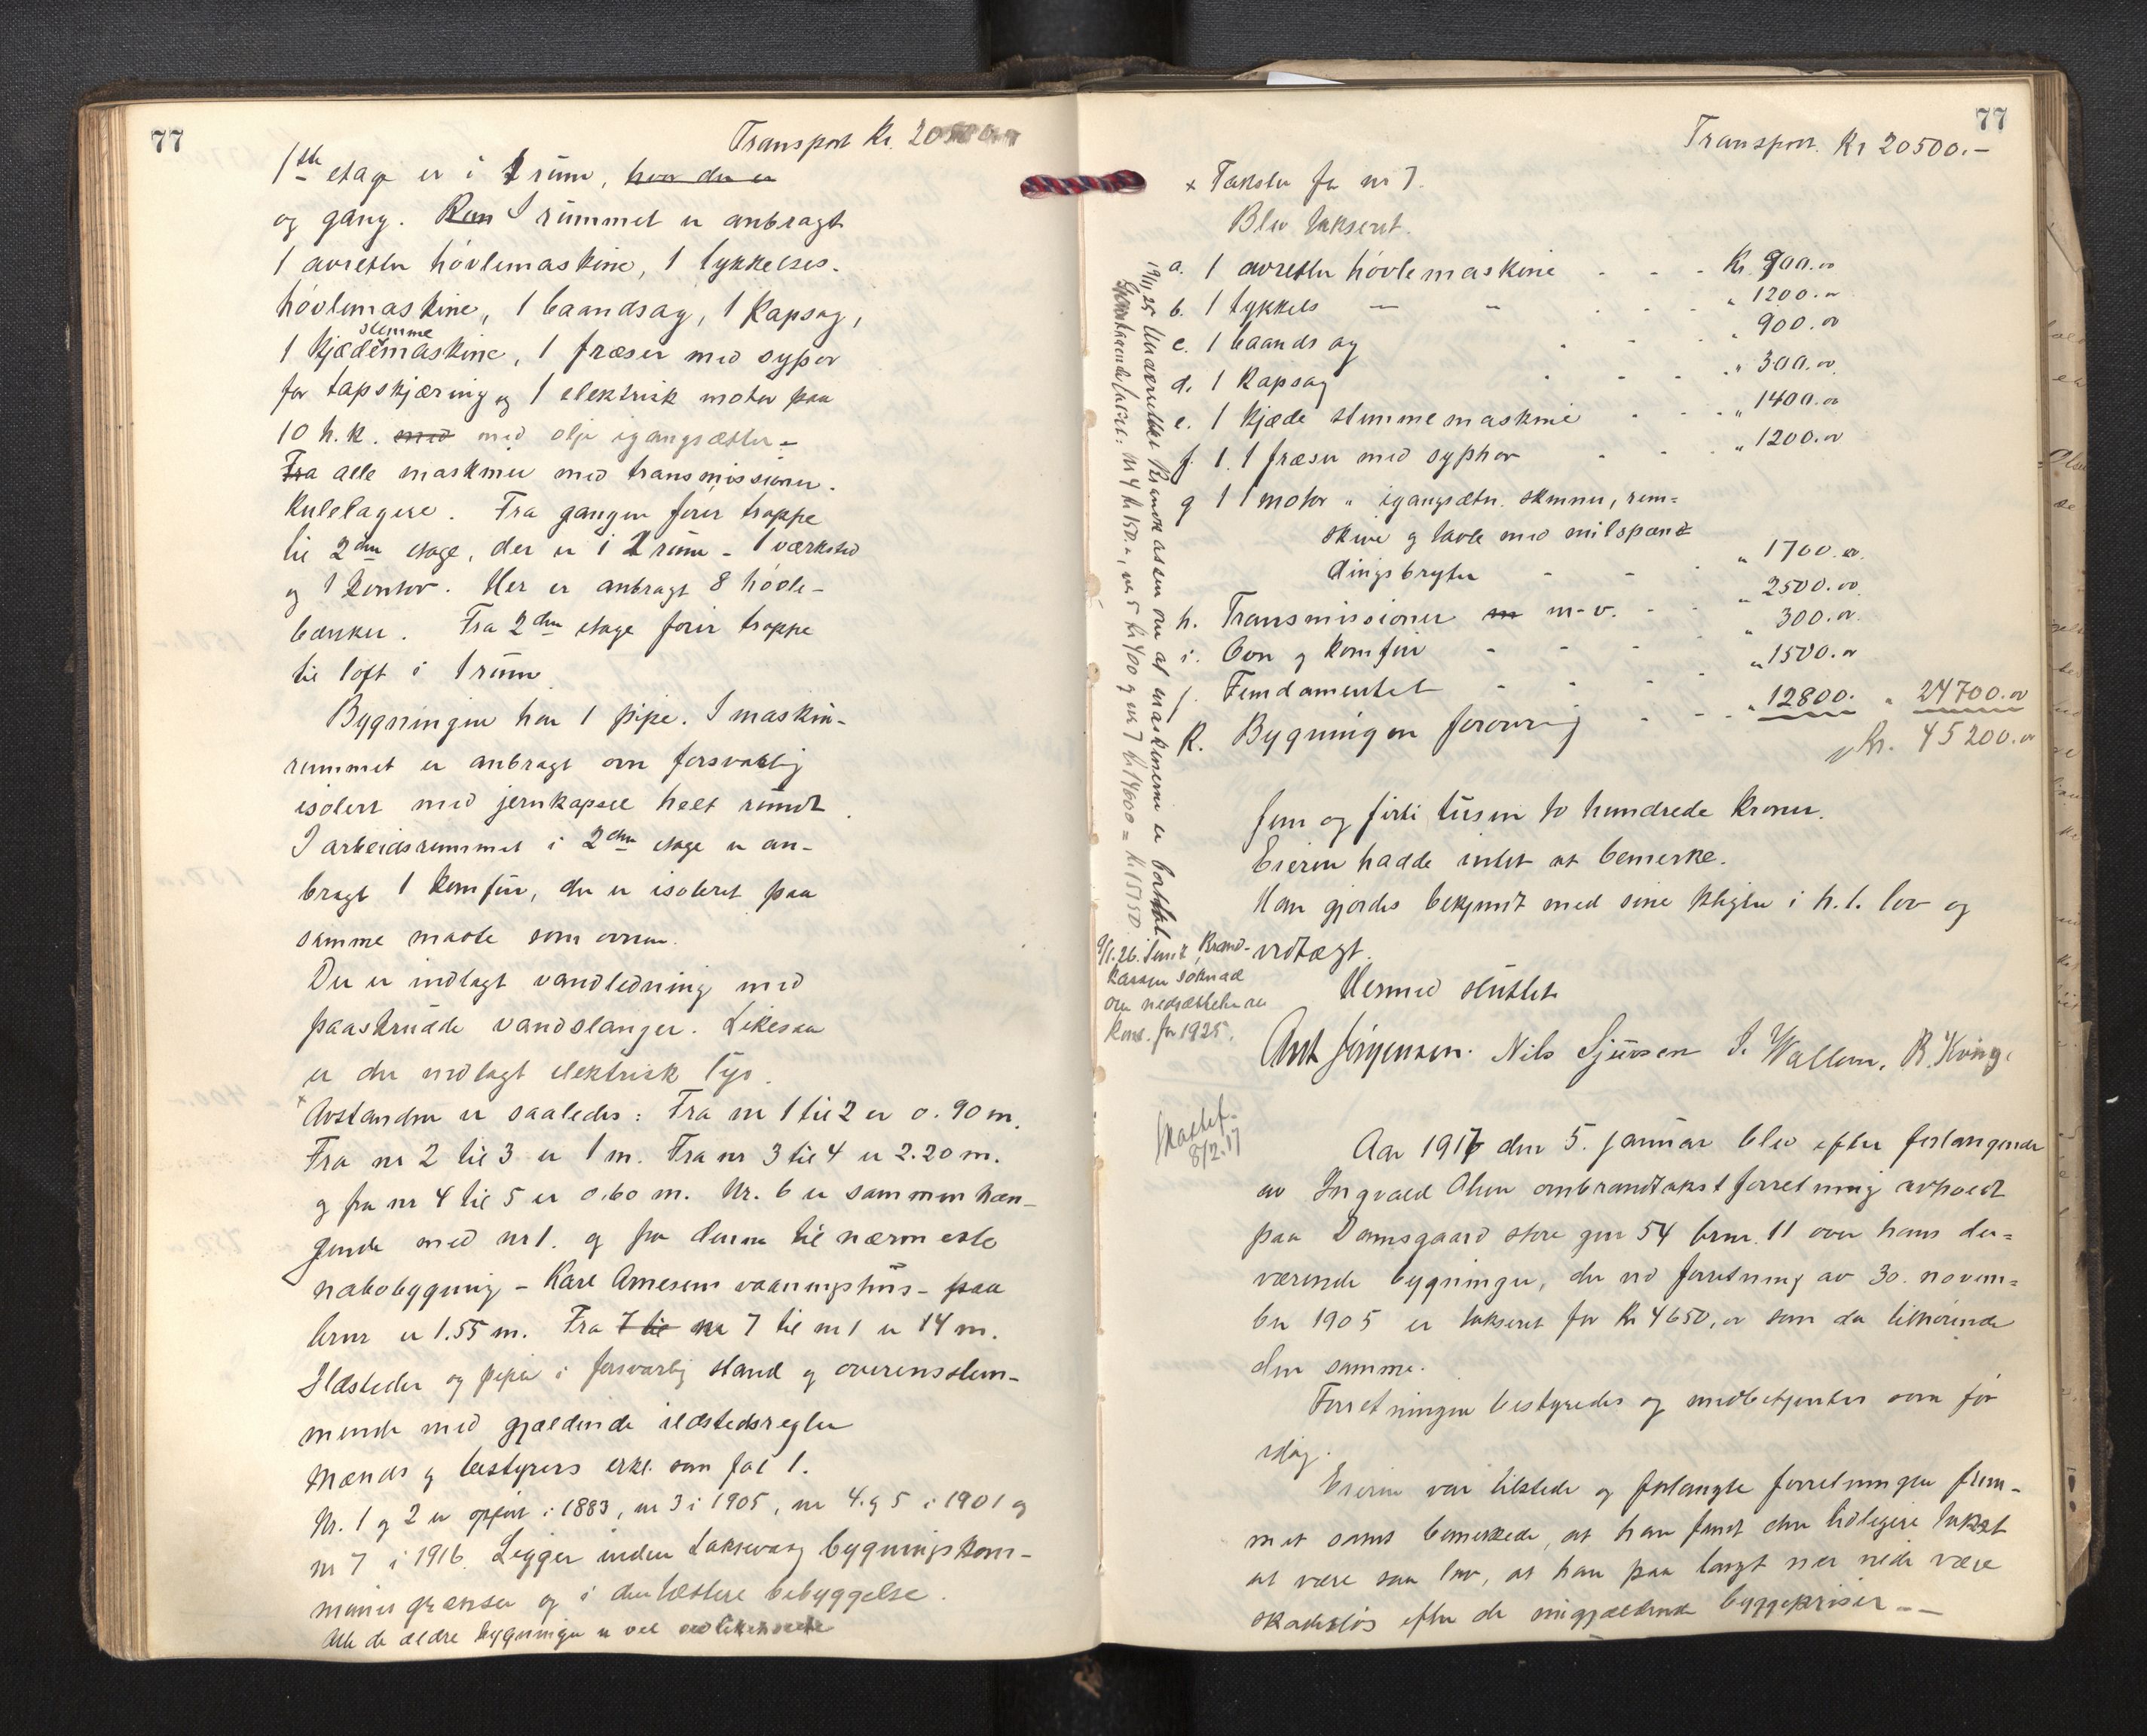 77
Transport Kr. 20500.00
1ste etage er i 1 rum, hvor der er
og gang. Rum I rummet er anbragt
1 avretter høvlemaskine, 1 tykkelses-
høvlemaskine, 1 baandsag, 1 kapsag,
1 kjædestemmemaskine, 1 fræser med sypor
for tapskjæring og 1 elektrisk motor paa
10 h.k. med med olje igangsætter -
Fra alle maskiner med transmissioner.
Kulelagere. Fra gangen fører trappe
til 2den etage, der er i 2 rum - 1 værksted
og 1 kontor. Her er anbragt 8 høvle-
bænker. Fra 2den etage fører trappe
til loft i 1 rum
Bygningen har 1 pipe. I maskin-
rummet er anbragt ovn forsvarlig
isolert med jernkapsel helt rundt.
I arbeidsrummet i 2den etage er an-
bragt 1 komfur, der er isoleret paa
samme maate som ovnen.
Der er indlagt vandledning med
paaskrudde vandslanger. Likesaa
er der indlagt elektrisk lys.
x Avstanden er saaledes: Fra nr 1 til 2 er 0.90 m.
Fra nr 2 til 3 er 1 m. Fra nr 3 til 4 er 2.20 m.
og fra nr 4 til 5 er 0.60 m. Nr. 6 er sammenhæn-
gende med nr 1. og fra denne til nærmeste
nabobygning - Karl Arnesens vaaningshus - paa
brnr er 1.55 m. Fra 7 til nr 7 til nr 1 er 14 m.
Ildsteder og piper i forsvarlig stand og overensstem-
mende med gjældende ildstedsregler
Mænds og bestyrers erkl. som fol 1.
Nr. 1 og 2 er opført i 1883, nr 3 i 1905, nr 4 og 5 i 1901 og
nr 7 i 1916. Ligger inden Laksevaag bygningskom-
munes grænser og i den tættere bebyggelse.
Alle de ældre bygninger er vel vedlikeholdte
77
Transport. Kr 20500.-
x Takster for nr 7.
Blev takseret.
a. 1 avretter høvlemaskine - - - Kr. 900.00
b. 1 tykkels — " - - - " 1200.00
c. 1 baandsag - - - " 900.00
d. 1 kapsag - - - " 300.00
e. 1 kjæde stemmemaskine - - - " 1400.00
f. 1 1 fræser med syphor - - - " 1200.00
g 1 1 motor " igangsætn. skinner, rem=
skive og tavle med
dingsbryter - - - " 1700.00
h. Transmissioner m m.v. - - " 2500.00
i. Ovn og komfur - - - " 300.00
j. Fundamentet - - - " 1500.00
k. Bygningen forøvrig - - - " 12800. " 24700.00
Kr. 45200.00
fem og firti tusen to hundrede kroner.
Eieren hadde intet at bemerke.
Han gjordes bekjendt med sine pligter i h.t. lov og
vedtægt.
Hermed sluttet
Ant Jørgensen. Nils Sjursen I. Wallem. R. Kvinge
19/11.25 Underrettet Brandkassen om at maskinerne er bortsolgt.
Gjenstaaende takst: nr 4 kr 150.-, nr 5 kr 400 og nr 7 kr 14600 = kr 15150.
9/1.26. Sendt Brand-
kassen søknad
om nedsættelse av
kont. for 1925.
8/2.17
Aar 1917 den 5. januar blev efter forlangende
av Ingvald Olsen ombrandtakstforretning avholdt
paa Damsgaard store gnr 54 brnr. 11 over hans der=
værende bygninger, der ved forretning av 30. novem=
ber 1905 er takseret for kr 4650.00 som da tilhørende
den samme.
Forretningen bestyredes og medbetjentes som før
idag.
Eieren var tilstede og forlangte forretningen frem-
met samt bemerkede, at han fandt den tidligere takst
at være saa lav, at han paa langt nær vilde være
skadesløs efter de nugjældende byggepriser --